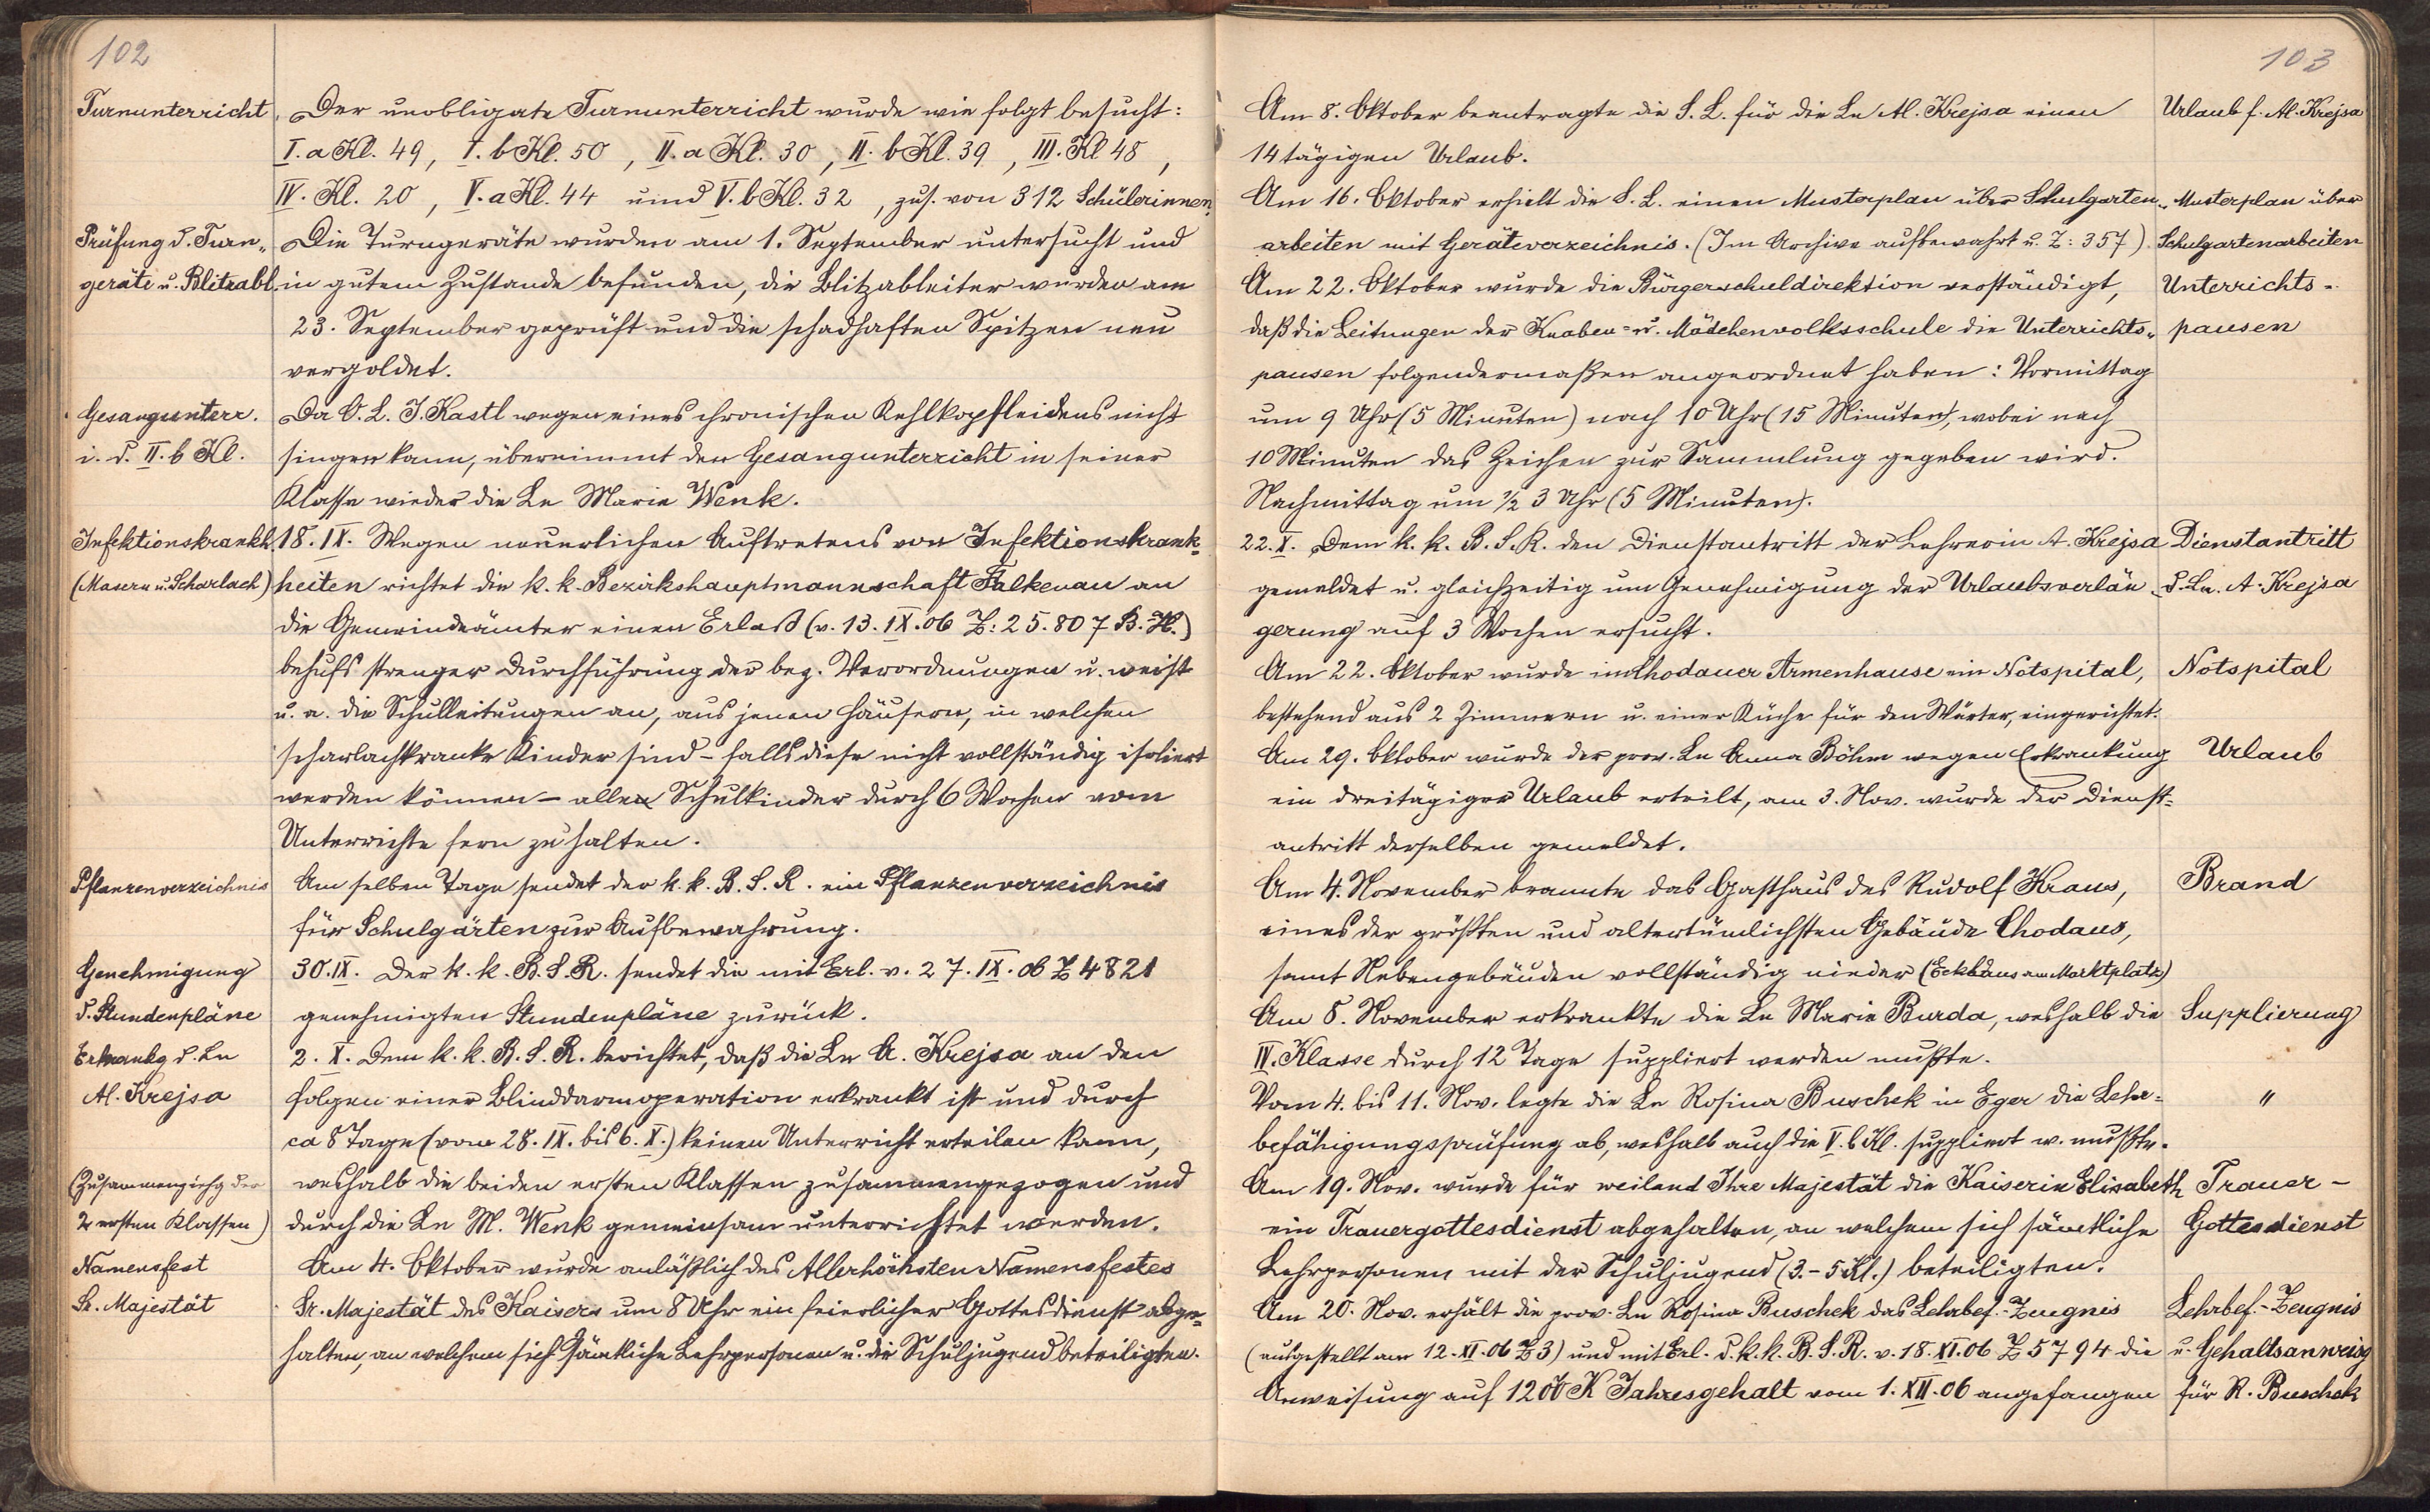 102
Turnunterricht
Der unobligate Turnunterricht wurde wie folgt besucht:
I. a Kl. 49, I. b Kl. 50, II. a Kl. 30, II. b Kl. 39, III. Kl 48,
IV. Kl. 20, V. a Kl. 44 und V. b Kl. 32, zus. von 312 Schülerinnen.
Prüfung d. Turn„
Die Turngeräte wurden am 1. September untersucht und
geräte u. Blitzabl.
in gutem Zustande befunden, die Blitzableiter wurden am
23. September geprüft und die schadhaften Spitzen neu
vergoldet.
Gesangunterr.
Da O. L. J. Kastl wegen eines chronischen Kehlkopfleidens nicht
i. d. II. b Kl.
singen kann, übernimmt den Gesangunterricht in seiner
Klasse wieder die Ln Marie Wenk.
Infektionskrankh.
18. IX. Wegen neuerlichen Auftretens von Infektionskrank-
(Masern u. Scharlach)
heiten richtet die k. k. Bezirkshauptmannschaft Falkenau an
die Gemeindeämter einen Erlaß (v. 13. IX. 06 Z: 25.807 B. H.)
behufs strenger Durchführung der bez. Verordnungen u. weist
u. a. die Schulleitungen an, aus jenen Häusern, in welchen
scharlachkranke Kinder sind – falls diese nicht vollständig isoliert
werden können – allen Schulkinder durch 6 Wochen vom
Unterrichte fern zu halten.
Pflanzenverzeichnis
Am selben Tage sendet der k. k. B. S. R. ein Pflanzenverzeichnis
für Schulgärten zur Aufbewahrung.
Genehmigung
30. IX. Der k. k. B. S. R. sendet die mit Erl. v. 27. IX. 06 Z 4821
d. Stundenpläne
genehmigten Stundenpläne zurück.
Erkrankg d. Ln
2. X. Dem k. k. B. S. R. berichtet, daß die Ln A. Krejsa an den
Al. Krejsa
Folgen einer Blinddarmoperation erkrankt ist und durch
ca 8 Tage (vom 28. IX. bis 6. X.) keinen Unterricht erteilen kann,
(Zusammenziehg der
weshalb die beiden ersten Klassen zusammengezogen und
2 ersten Klassen)
durch die Ln M. Wenk gemeinsam unterrichtet werden.
Namensfest
Am 4. Oktober wurde anläßlich des Allerhöchsten Namensfestes
Sr. Majestät
Sr. Majestät des Kaisers um 8 Uhr ein feierlicher Gottesdienst abge-
halten, an welchem sich sämtliche Lehrpersonen u. die Schuljugend beteiligten.
103
Am 8. Oktober beantragte die S. L. für die Ln Al. Krejsa einen
Urlaub f. Al. Krejsa
14 tägigen Urlaub.
Am 16. Oktober erhielt die S. L. einen Musterplan über Schulgarten„
Musterplan über
arbeiten mit Geräteverzeichnis. (Im Archive aufbewahrt u. Z: 357).
Schulgartenarbeiten
Am 22. Oktober wurde die Bürgerschuldirektion verständigt,
Unterrichts-
daß die Leitungen der Knaben- u. Mädchenvolksschule die Unterrichts„
pausen
pausen folgendermaßen angeordnet haben: Vormittag
um 9 Uhr (5 Minuten) nach 10 Uhr (15 Minuten), wobei nach
10 Minuten das Zeichen zur Sammlung gegeben wird.
Nachmittag um ½ 3 Uhr (5 Minuten).
22. X. Dem k. k. B. S. R. den Dienstantritt der Lehrerin A. Krejsa
Dienstantritt
gemeldet u. gleichzeitig um Genehmigung der Urlaubsverlän-
d. Ln. A. Krejsa
gerung auf 3 Wochen ersucht.
Am 22. Oktober wurde im Chodauer Armenhause ein Notspital,
Notspital
bestehend aus 2 Zimmern u. einer Küche für den Wärter, eingerichtet.
Am 29. Oktober wurde der prov. Ln Anna Böhm wegen Erkrankung
Urlaub
ein dreitägiger Urlaub erteilt, am 3. Nov. wurde der Dienst-
antritt derselben gemeldet.
Am 4. November brannte das Gasthaus des Rudolf Kraus,
Brand
eines der größten und altertümlichsten Gebäude Chodaus,
samt Nebengebäuden vollständig nieder (Eckhaus am Marktplatz)
Am 8. November erkrankte die Ln Marie Burda, weshalb die
Supplierung
IV. Klasse durch 12 Tage suppliert werden mußte.
Vom 4. bis 11. Nov. legte die Ln Rosina Buschek in Eger die Lehr-
"
befähigungsprüfung ab, weshalb auch die V. b Kl. suppliert w. mußte.
Am 19. Nov. wurde für weiland Ihre Majestät die Kaiserin Elisabeth
Trauer-
ein Trauergottesdienst abgehalten, an welchem sich sämtliche
Gottesdienst
Lehrpersonen mit der Schuljugend (3.–5 Kl.) beteiligten.
Am 20. Nov. erhält die prov. Ln Rosina Buschek das Lehrbef.-Zeugnis
Lehrbef.-Zeugnis
(ausgestellt am 12. XI. 06 Z 3) und mit Erl. d. k. k. B. S. R. v. 18. XI. 06 Z 5794 die
u. Gehaltsanweisg
Anweisung auf 1200 K Jahresgehalt vom 1. XII. 06 angefangen
für R. Buschek